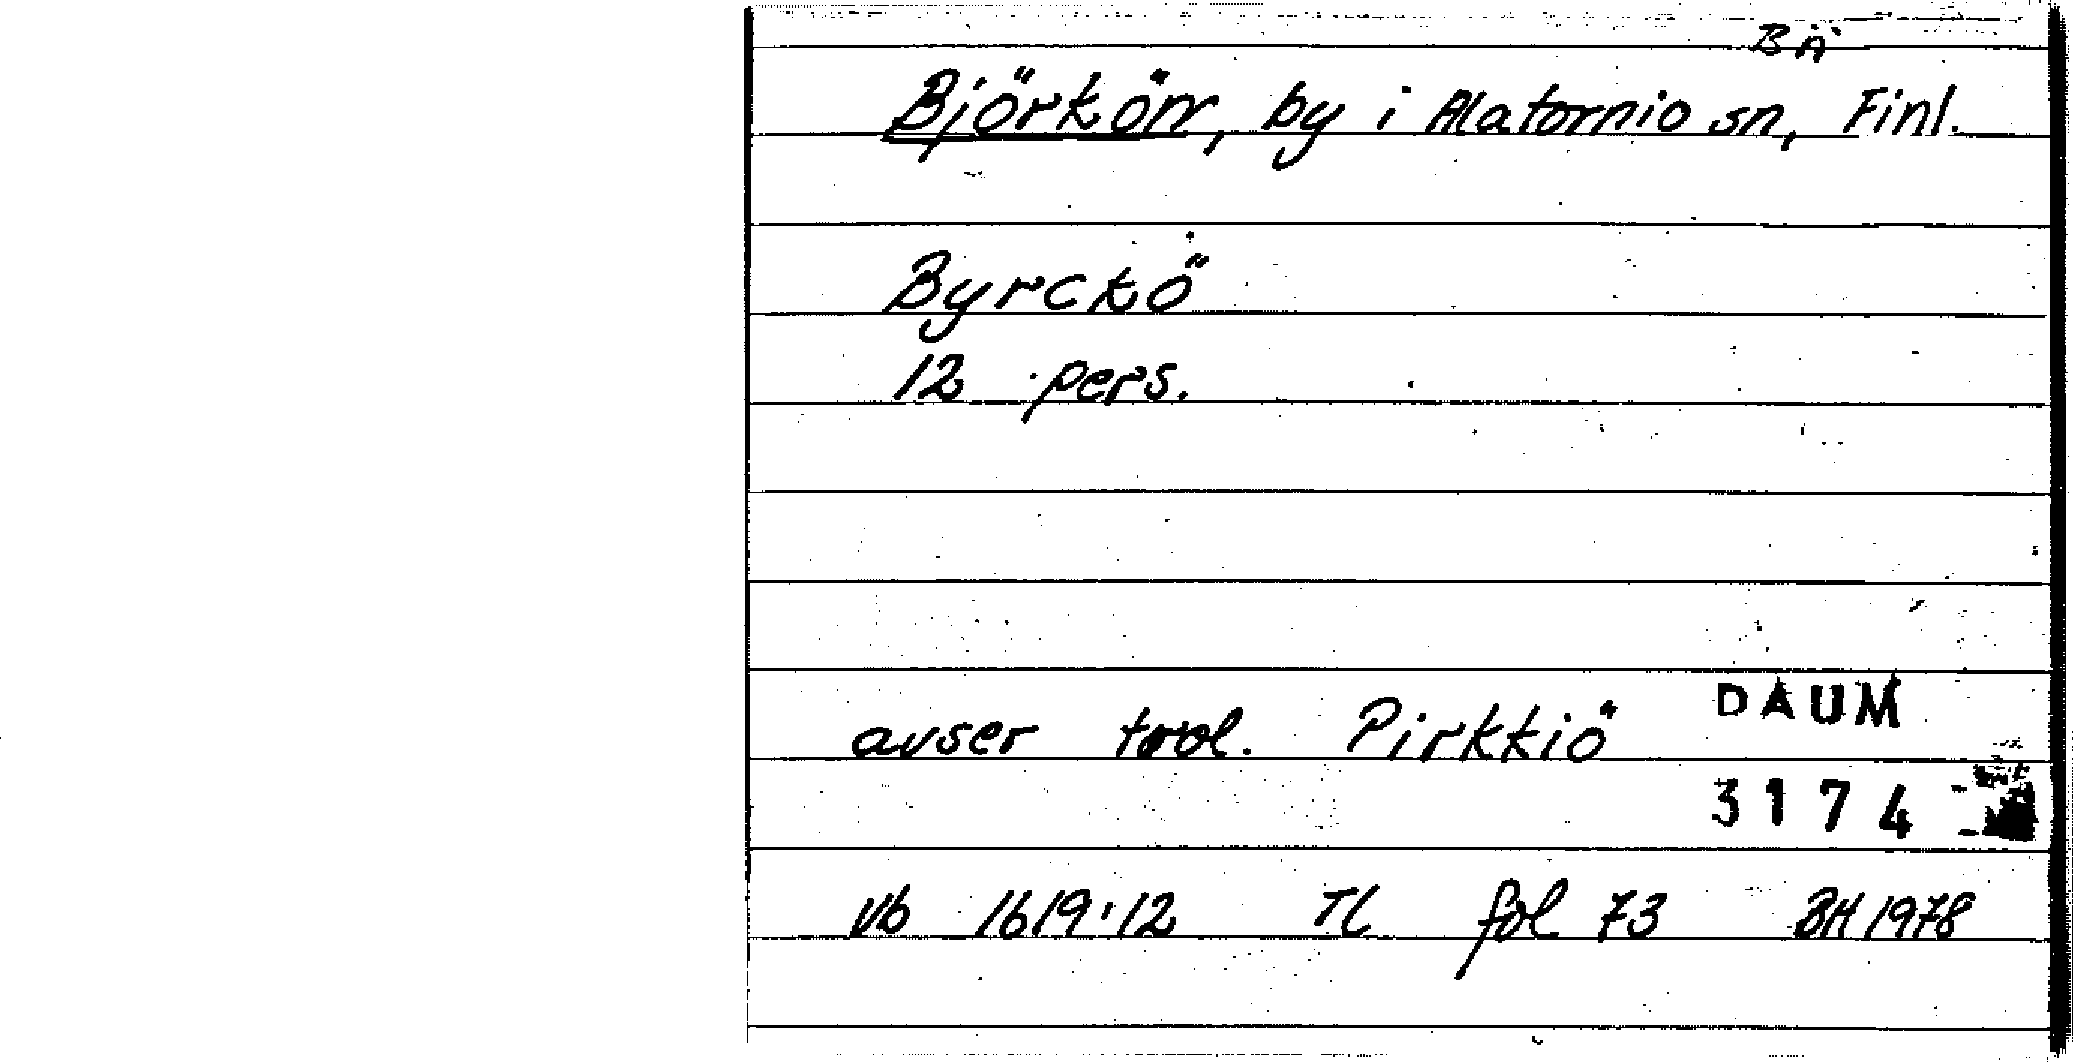 BÄ
Björkön, by i Alatornio sn, Finl.
Byrckö
12 pers.
avser trol. Pirkkiö
DAUM
3174
Vb 1619:12 TL fol 73 BH 1978